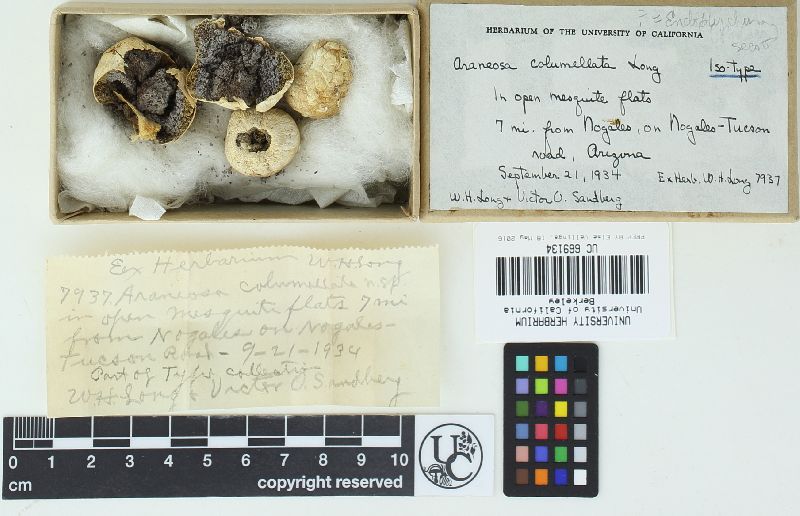 HERBARIUM OF THE UNIVERSITY OF CALIFORNIA
Araneosa columellata Long Iso-type
In open mesquite flats
7 mi. from Nogales, on Nogales-Tucson
road, Arizona
September 21, 1934 Ex Herb. W.H. Long 7937
W.H. Long & Victor O. Sandberg
Ex Herbarium W.H. Long
7937 Araneosa columellata n.sp.
in open mesquite flats 7 mi
from Nogales on Nogales-
Tucson Road - 9-21-1934
Part of Type collection
W.H. Long & Victor O. Sandberg
UNIVERSITY HERBARIUM
University of California
Berkeley
UC 669134
0 1 2 3 4 5 6 7 8 9 10
cm copyright reserved
UC